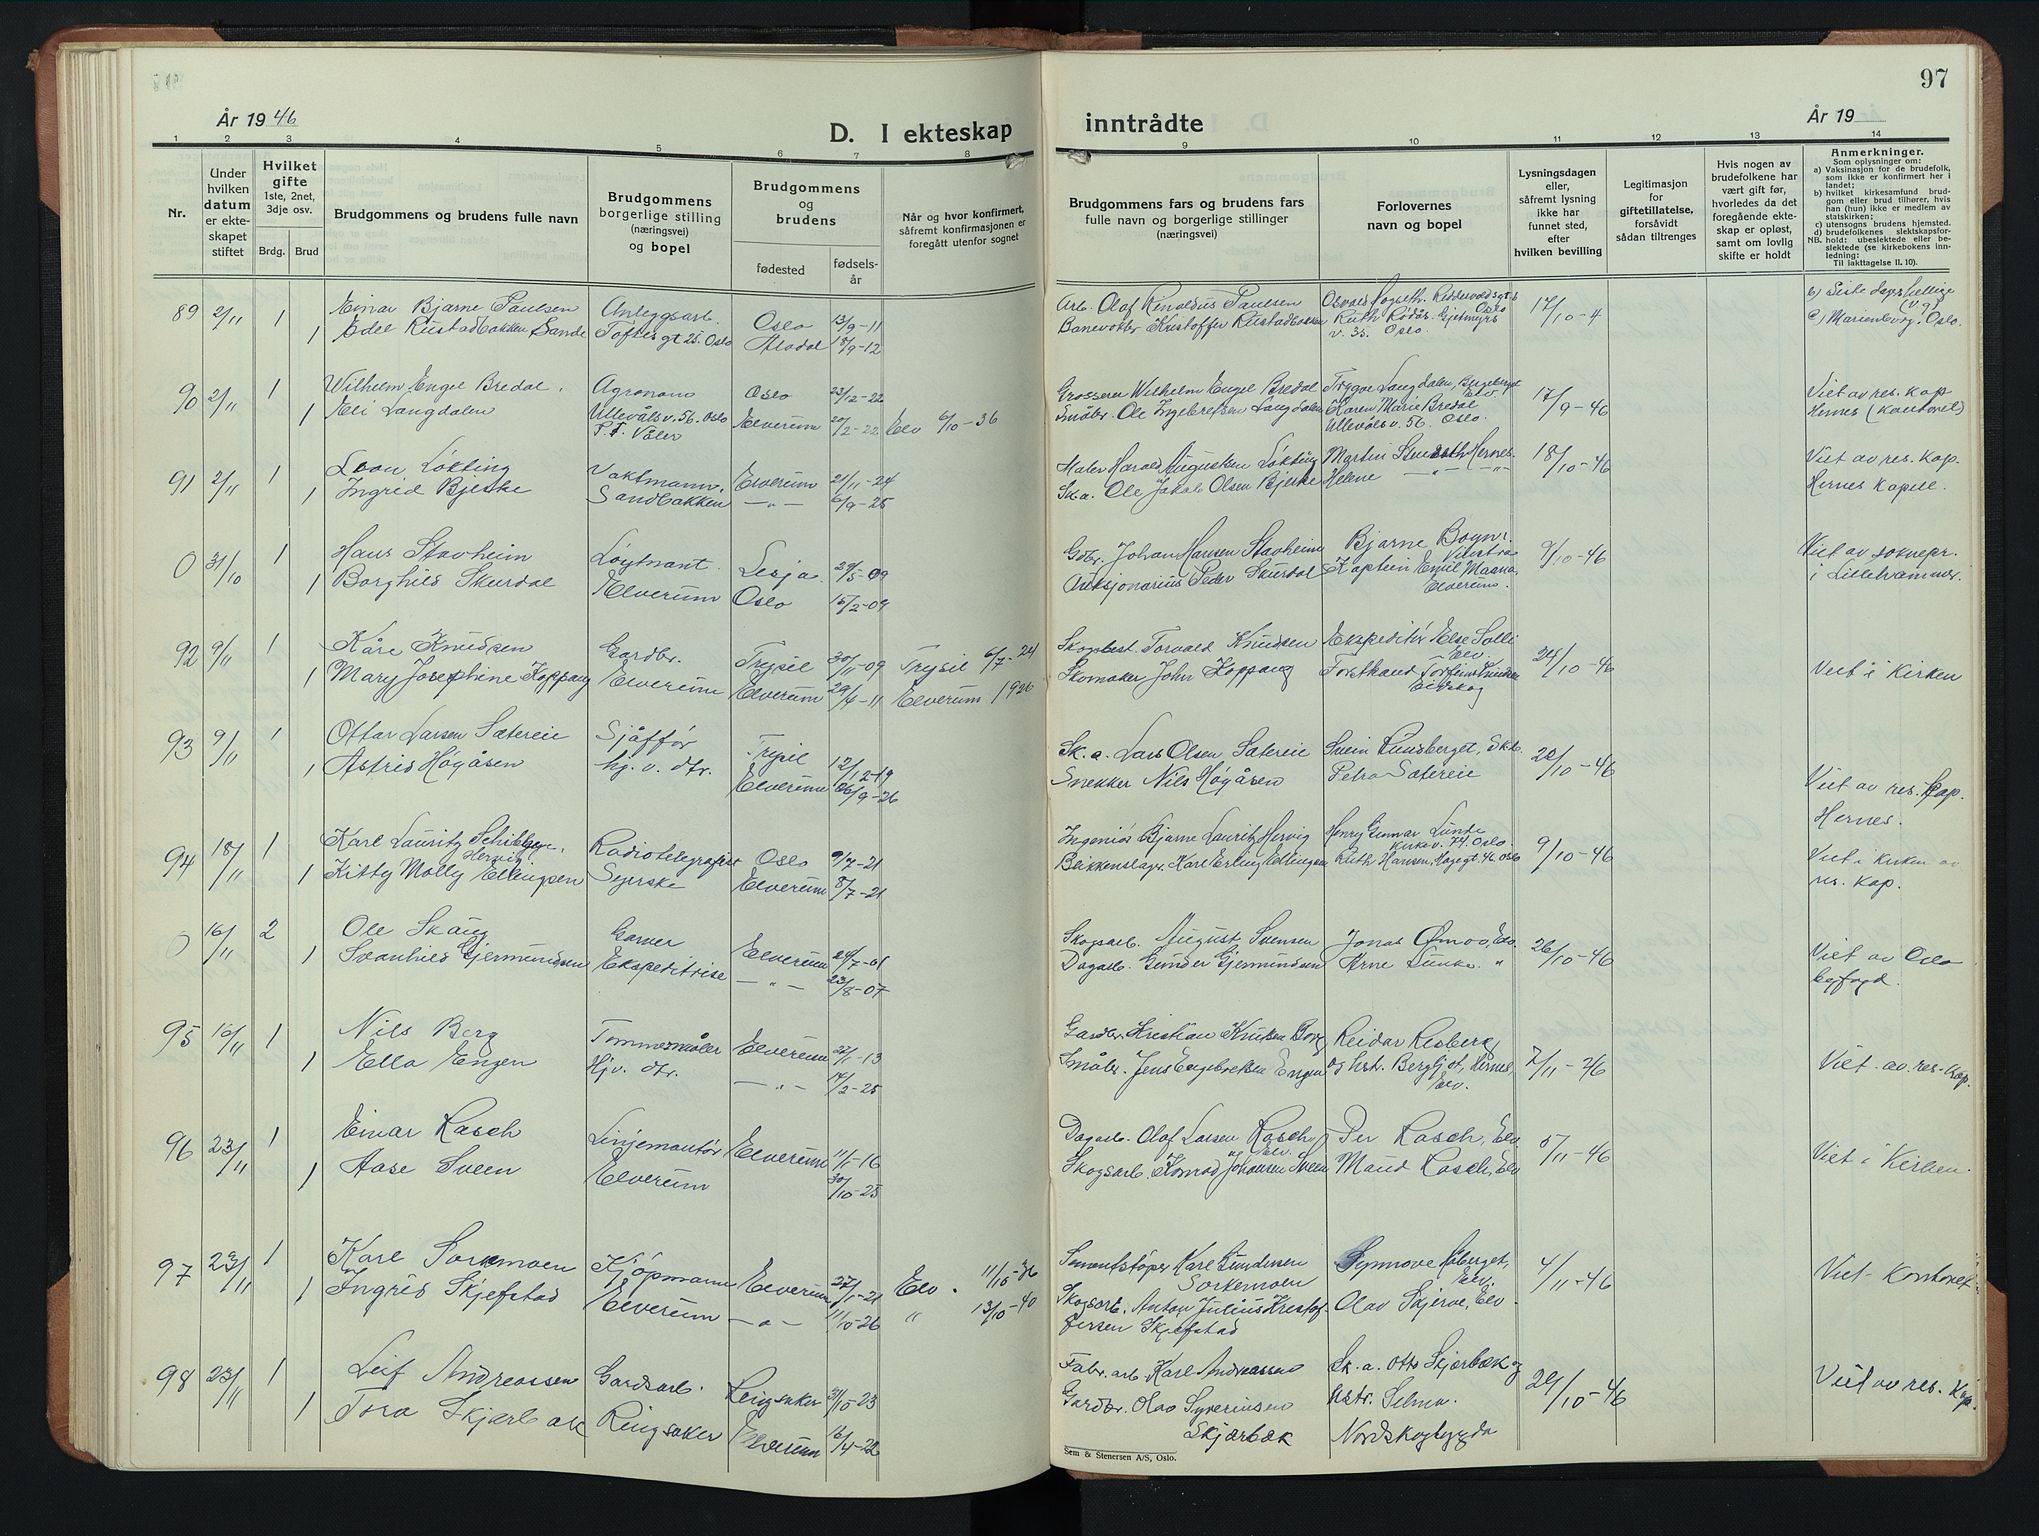 År 1946
D. I ekteskap
1 2 3 4 5 6 7 8
Nr.
Under hvilken datum er ekteskapet stiftet
Hvilket gifte 1ste, 2net, 3dje osv.
Brdg. Brud
Brudgommens og brudens fulle navn
Brudgommens borgerlige stilling (næringsvei) og bopel
Brudgommens og brudens
fødested
fødselsår
Når og hvor konfirmert, såfremt konfirmasjonen er foregått utenfor sognet
89 2/11 1 Einar Bjarne Paulsen Anleggsarb. Oslo 13/9-11
1 Edel Rustadbakken Sande Toftes gt 25. Oslo Alvdal 18/9-12
90 2/11 1 Wilhelm Engel Bredal. Agronom Oslo 23/12-22
1 Eli Langdalen Ullevålsv. 56. Oslo Elverum 20/2-22 Elv 6/10-36
P.T. Våler
91 2/11 1 Løkting Vaktmann. Elverum 21/11-24
1 Ingrid Bjeske Sandbakken -"- 6/9-25
0 31/10 1 Hans Stavheim Løytnant. Lesja 29/5-09
1 Borghild Skurdal Elverum Oslo 15/2-09
92 9/11 1 Kåre Knudsen Gardbr. Trysil 30/11-09 Trysil 6/7-24
1 Mary Josephine Koppang Elverum Elverum 29/6-11 Elverum 1926
93 9/11 1 Ottar Larsen Sætereie Sjåffør Trysil 12/12-19
1 Astrid Høgåsen hj. v. dtr. Elverum 26/9-26
94 18/11 1 Karl Lauritz Schibbye. Hervig Radiotelegrafist Oslo 9/7-21
1 Kitty Molly Ellingsen Syerske Elverum 8/7-21
0 16/11 2 Ole Skaug Garver Elverum 24/7-01
1 Svanhild Gjermundsen Ekspeditrise -"- 23/8-07
95 16/11 1 Nils Berg Tømmermåler Elverum 27/1-13
1 Ella Engen Hjv. dtr. -"- 14/2-25
96 23/11 1 Einar Rasch Linjemontør Elverum 11/1-16
1 Aase Sveen Elverum 30/10-25
97 23/11 1 Karl Sorkmoen Kjøpmann Elverum 27/1-21 Elv. 11/10-36
1 Ingrid Skjefstad Elverum -"- 11/10-26 " 13/10-40
98 23/11 1 Leif Andreassen Gardsarb. Ringsaker 31/10-23
1 Tora Skjærbæk Ringsaker Elverum 16/4-22
97
inntrådte
År 19
9 10 11 12 13 14
Brudgommens fars og brudens fars fulle navn og borgerlige stillinger (næringsvei)
Forlovernes navn og bopel
Lysningsdagen eller, såfremt lysning ikke har funnet sted, efter hvilken bevilling
Legitimasjon for giftetillatelse, forsåvidt sådan tiltrenges
Hvis nogen av brudefolkene har vært gift før, hvorledes da det foregående ekteskap er opløst, samt om lovlig skifte er holdt
Anmerkninger.
Som oplysninger om:
a) Vaksinasjon for de brudefolk, som ikke er konfirmert her i landet;
b) hvilket kirkesamfund brudgom eller brud tilhører, hvis han (hun) ikke er medlem av statskirken;
c) utensogns brudens hjemsted.
d) brudefolkenes slektskapsforhold: ubeslektede eller beslektede (se kirkebokens innledning:
NB.
Til iakttagelse II. 10).
Arb. Olaf Rinoldus Paulsen Osvald Fogseth. Riddervoldsgt. 6 Oslo 17/10-4 b) Siste dagers hellige
Banevokter Kristoffer Rustadbakken Ruth Rødås. Gjetmyrs v. 35. Oslo. c) Marienborg. Oslo.
Grosserer Wilhelm Engel Bredal Trygve Langdalen, Elv 17/9-46 Viet av res. kap
Småbr. Ole Ingebretsen Langdalen Karen Marie Bredal Ullevålsv. 56. Oslo. Hernes (kontoret)
Maler Harald Augustsen Løkting Martin Stenseth Hernes. 18/10-46 Viet av res. kap.
Sk.a. Ole Jakob Olsen Bjeske Helene -"- -"- Hernes kapell.
Gdbr. Johan Hansen Stavheim Bjarne 9/10-46 Viet av sognepr.
Auksjonarius Peder Skurdal Kaptein Emil Elverum. i Lillehammer.
Skogbest. Torvald Knudsen Ekspeditør Else Solli Elv. 25/10-46 Viet i kirken
Skomaker John Koppang Forstkand Torfinn Knudsen Eidskog
Sk.a. Lars Olsen Sætereie Svein Lunsberget, 22/10-46 Viet av res. kap.
Snekker Nils Høgåsen Petra Sætereie Hernes.
Ingeniør Bjarne Lauritz Hervig Henry Gunnar Lunde Kirkev. 74. Oslo. 9/10-46 Viet i kirken av
Blikkenslagr. Karl Erling Ellingsen Ruth Hansen, Oslo res. kap.
Skogsarb. August Svensen Jonas Ømoo, Elv. 26/10-46 Viet av Oslo
Dagarb. Gunder Gjermundsen Arne " byfogd.
Gardbr. Kristian Knutsen Berg Reidar Risberg 7/11-46 Viet av res. kap.
Småbr. Jens Engebretsen Engen og hstr. Bergljot, Hernes, Elv.
Dagarb. Olaf Larsen Rasch, Elv. Per Rasch, Elv 5/11-46 Viet i Kirken.
Skogsarb. Konrad Johansen Sveen Maud Rasch, Elv
Sementstøper Karl Gundersen Sorkmoen Synnøve Åberget, Elv. 4/11-46 Viet Kontoret
Skogsarb. Anton Julius Kristoffersen Skjefstad Olav Skjerve, Elv.
Fabr. arb. Karl Andreassen Sk.a. Otto Skjærbæk og 29/10-46 Viet av res. kap.
Gardbr. Olav Syverinsen Skjærbæk hstr. Selma. Nordskogbygda
Sem & Stenersen A/S, Oslo.